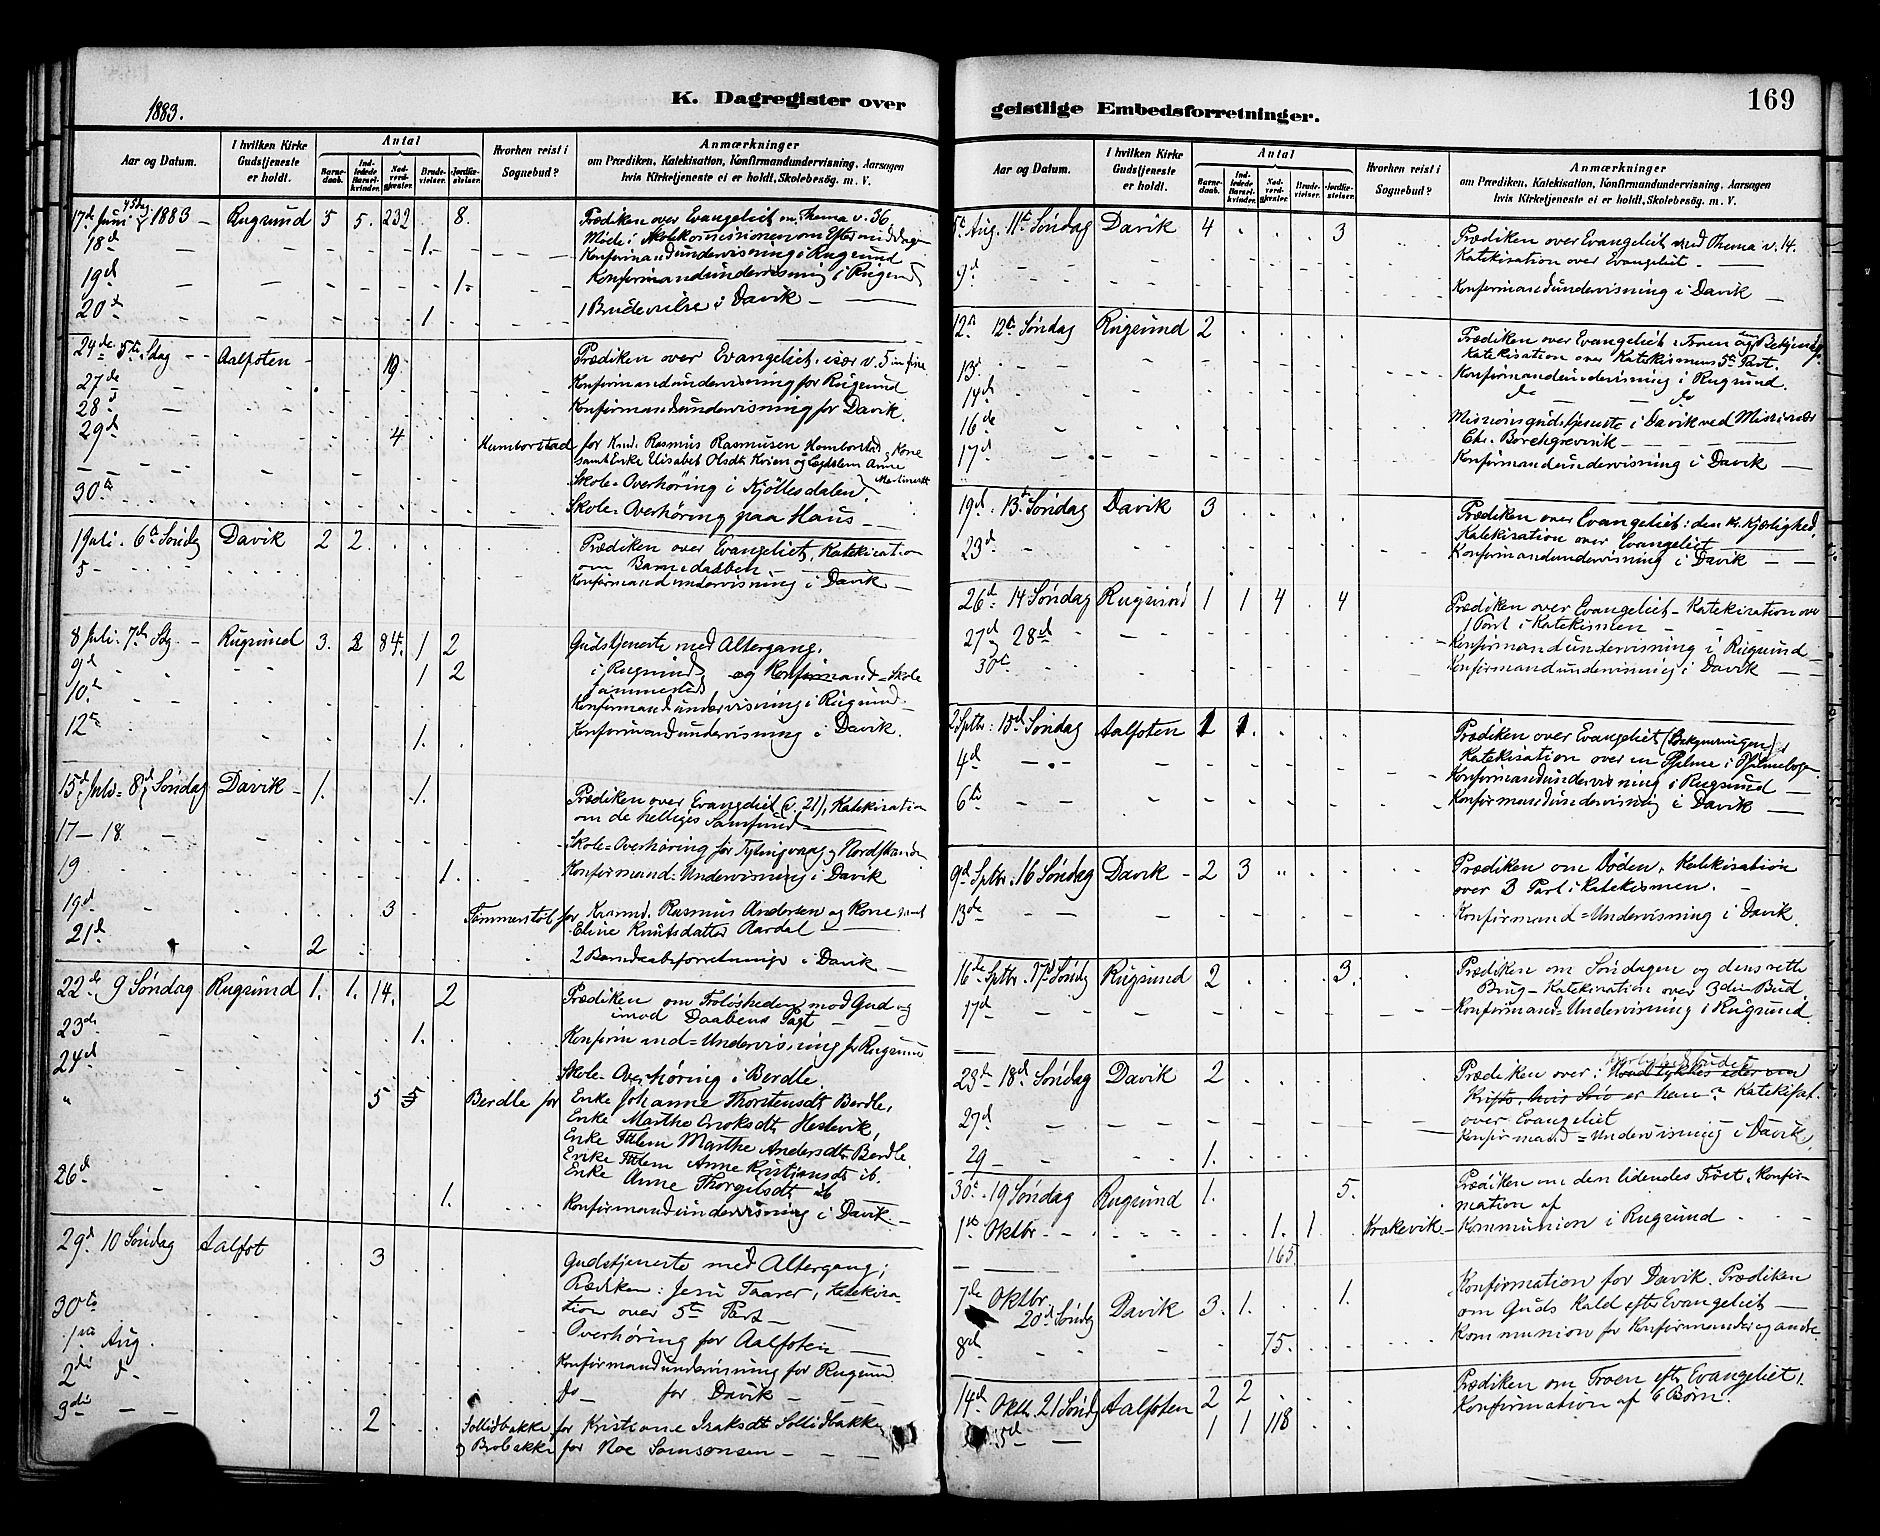 1883.
K. Dagregister over
Aar og Datum.
I hvilken Kirke Gudstjeneste er holdt.
Antal
Barnedaab.
Indledede Barselkvinder.
Nadverdgjester.
Brudevielser.
Jordfæstelser.
Hvorhen reist i Sognebud?
Anmærkninger
om Prædiken, Katekisation, Konfirmandundervisning, Aarsagen
hvis Kirketjeneste ei er holdt, Skolebesøg. m. V.
17de Juni 4 Stg 1883 - Rugsund 5 5. 232 8. Prædiken over Evangeliet m. Thema v. 36
18d 1. Møde i Skolekommissionen om Eftermiddagen
Konfirmandundervisning i Rugsund
19d 1. Konfirmandundervisning i Rugsund
20de 1 1 Brudevielse i Davik
24de 5te Sdag Aalfoten 19. Prædiken over Evangeliet, især v. 5 in fine
27de Konfirmandundervisning for Rugsund
28d Konfirmandundervisning for Davik.
29d 4 Humborstad for Kaarm. Rasmus Rasmusen Homborstad og Kone
samt Enke Elisabet Olsdtr og Anne
Skole-Overhøring i Kjøllesdalen. Martinesdt
30te Skole-Overhøring paa Haus
1 Juli. 6te Søndag Davik 2 2. Prædiken over Evangeliet, Katekisation
om Barnedaaben
5 Konfirmandundervisning i Davik
8 Juli. 7de Stg. Rugsund 3. 2 84. 1 2 Gudstjeneste med Altergang.
9d 1 2 i Rugsund og Konfirmand-Skole
sammesteds
10de Konfirmandundervisning i Rugsund
12te 1. Konfirmandundervisning i Davik.
15d Juli 8d Søndag Davik 1. 1. Prædiken over Evangeliet (v. 21), Katekisation
om de helliges Samfund
17-18 Skole-Overhøring for og Nordstranden
19 1. Konfirmand-Undervisning i Davik
19d 3 Tømmerstøl for Kaarmd. Rasmus Andersen og Kone samt
Eline Knutsdatter Aardal
21d 2 2 Barnedaabsforretninger i Davik
22de 9 Søndag Rugsund 1. 1. 14. 2 Prædiken om Troløsheden mod Gud og
imod Daabens Pagt
23de 1. Konfirmand-Undervisning for Rugsund
24d Skole-Overhøring i Berdle.
" 5 5 Berdle for Enke Johanne Thorstensdt Berdle,
Enke Marthe Eriksdt Hestevik,
Enke Marthe Andersdt Berdle.
Enke Anne Kristiansdt ib.
Enke Anne Thorgilsdt ib
26d 1. Konfirmandundervisning i Davik
29d 10 Søndag Aalfot 3 Gudstjeneste med Altergang;
Prædiken: Jesu Taarer, Katekisa-
tion over 5te Part
30te Overhøring for Aalfoten
1ste Aug. Konfirmandundervisning for Rugsund
2de d. Do for Davik
3die 2 Sollidbakke for Kristiane Isaksdt Sollidbakke,
og Brobakke for Noe Samsonsen
geistlige Embedsforretninger.
169
Aar og Datum.
I hvilken Kirke Gudstjeneste er holdt.
Antal
Barnedaab.
Indledede Barselkvinder.
Nadverdgjester.
Brudevielser.
Jordfæstelser.
Hvorhen reist i Sognebud?
Anmærkninger
om Prædiken, Katekisation, Konfirmandundervisning, Aarsagen
hvis Kirketjeneste ei er holdt, Skolebesøg. m. V.
5te Aug. 11te Søndag Davik 4 3 Prædiken over Evangeliet med Thema v. 14.
Katekisation over Evangeliet
9d Konfirmandundervisning i Davik
12te 12te Søndag Rugsund 2 Prædiken over Evangeliet: Troen og dens Bekjendelse
Katekisation over Katekismens 5te Part.
13. Konfirmandundervisning i Rugsund.
14d do do
16de Missionsgudstjeneste i Davik ved Missionær
Chr. Borchgrevink
17d Konfirmandundervisning i Davik
19d. 13de Søndag Davik 3 Prædiken over Evangeliet: den kr. Kjærlighed,
Katekisation over Evangeliet
23d Konfirmandundervisning i Davik
26d 14 Søndag Rugsund 1 1 4 4 Prædiken over Evangeliet - Katekisation over
1 Part i Katekismen
27d og 28d Konfirmandundervisning i Rugsund
30te Konfirmandundervisning i Davik
2 Sptbr. 15d Søndag Aalfoten 1 1. Prædiken over Evangeliet (Bekymringen),
Katekisation over en Psalme i Psalmebogen
4d Konfirmandundervisning i Rugsund
6te Konfirmandundervisning i Davik
9d Sptbr. 16 Søndag Davik 2 3 " Prædiken om Døden. Katekisation
over 3 Part i Katekismen.
13de Konfirmand-Undervisning i Davik
16de Sptbr. 17d Søndg Rugsund 2 3. Prædiken om Søndagen og dens rette
Brug - Katekisation over 3die Bud
17d Konfirmand-Undervisning i Rugsund.
23d 18d Søndag Davik 2 Prædiken over: Kjærlighedsbudet Hvad tykkes eder om
Kristo, hvis Søn er han? Katekisat.
over Evangeliet
27d Konfirmand-Undervisning i Davik,
29 1.
30te. 19 Søndag Rugsund 1. 5. Prædiken om den lidendes Trøst, Konfir-
mation af
1ste Oktbr. 1. 1 Krakevik Kommunion i Rugsund
165
7de Oktbr 20d Søndg Davik 3. 1. 1. Konfirmation for Davik. Prædiken
om Guds Kald efter Evangeliet
8d 75. Kommunion for Konfirmander og andre.
14d Oktb. 21 Søndg Aalfoten 2 2 Prædiken om Troen eftr Evangeliet,
15d 1 1 118 Konfirmation af 6 Børn.